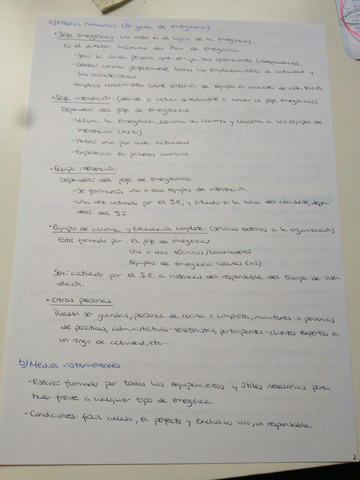 a) Medios humanos (Órganos de emergencia):
• Jefe emergencia: (no está en el lugar de la emergencia).
Es el director máximo del Plan de Emergencia.
- Será la única persona que dirija las operaciones
- Deberá conocer perfectamente todos los emplazamientos de actividad y
sus características
- Amplios conocimientos sobre dirección de equipos en
• Jefe intervención:
Dependerá del jefe de emergencia.
- Valora la emergencia, la alarma y coordina a los equipos de
intervención
- Habrá uno por cada actividad
- Experiencia en primeros auxilios
• Equipo intervención:
Dependerá del jefe de emergencia.
- Se formarán uno o dos equipos de intervención.
- Una vez activado por el J.E, y situado en la zona del accidente, depen-
derá del J.I.
• Equipo de alarma y evacuación completa: (servicios externos a la organización).
Está formado por: El jefe de emergencia
Uno o dos técnicos/coordinadores
Equipos de emergencia locales (112).
Será activado por el J.E a instancias del responsable del equipo de inter-
vención.
• Otras personas:
Pueden ser guardas, personal de cocina o limpieza, monitores o personas
de prácticas, administrativos-telefonistas, participantes-clientes expertos en
un rango de actividad, etc...
b) Medios instrumentales:
- Estará formado por todos los equipamientos y útiles necesarios para
hacer frente a cualquier tipo de emergencia.
- Condiciones: fácil acceso, en perfecto y exclusivo uso, un responsable.
2